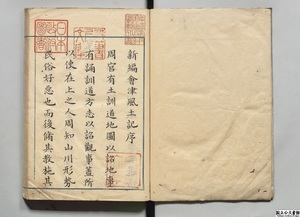 新編會津風土記序
周官有土訓道地圖以詔地事
有誦訓道方志以詔觀事蓋所
以使在上之人周知山川形勢
民俗好惡也而後脩其教施其